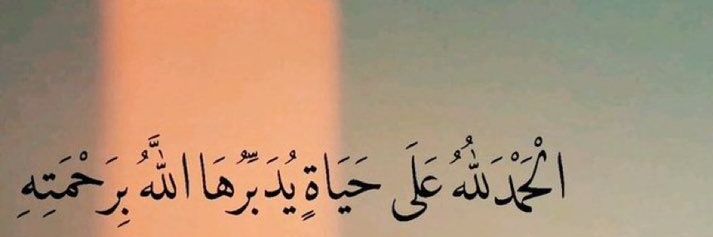 الْحَمْدُ لِلّٰهُ عَلَى حَيَاةٍ يُدَبِّرُهَا اللَّهُ بِرَحْمَتِهِ